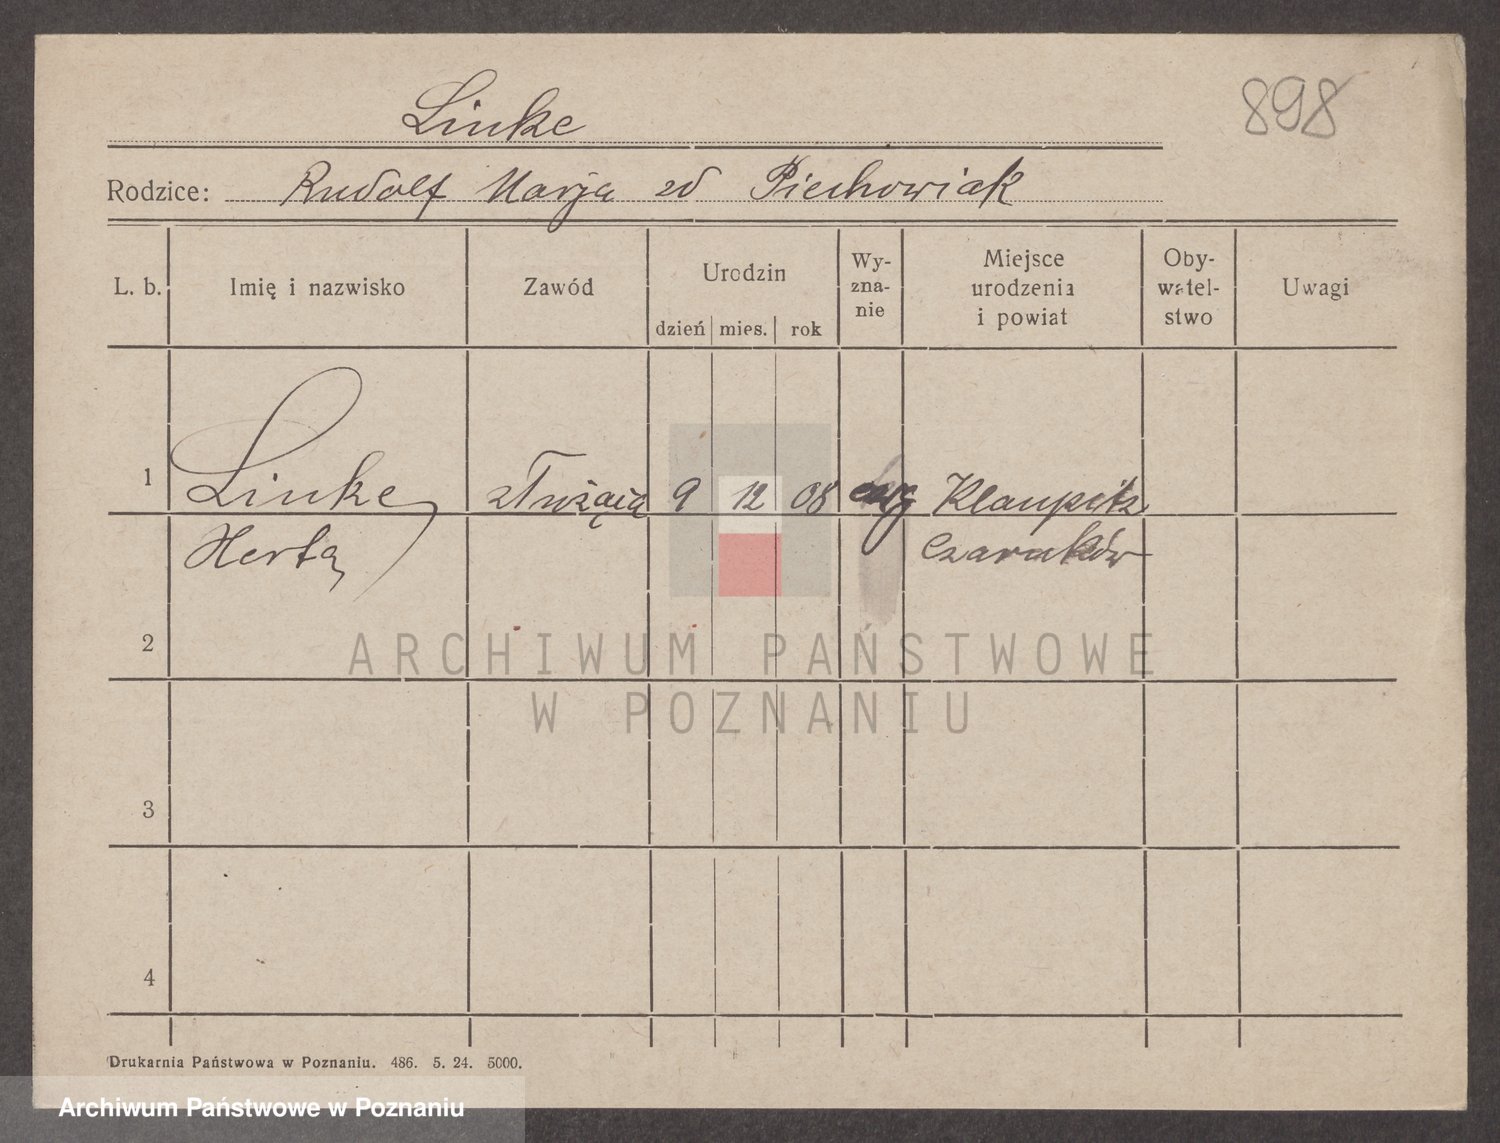 898
Linke
Rodzice: Rudolf Marja zd Piechowiak
L. b. Imię i nazwisko Zawód Urodzin dzień mies. rok Wy-zna-nie Miejsce urodzenia i powiat Oby-watel-stwo Uwagi
1 Linke służąca 9 12 08 ewg Klaupitz
Herta Czarnków
2
3
4
ARCHIWUM PAŃSTWOWE
W POZNANIU
Drukarnia Państwowa w Poznaniu. 486. 5. 24. 5000.
Archiwum Państwowe w Poznaniu